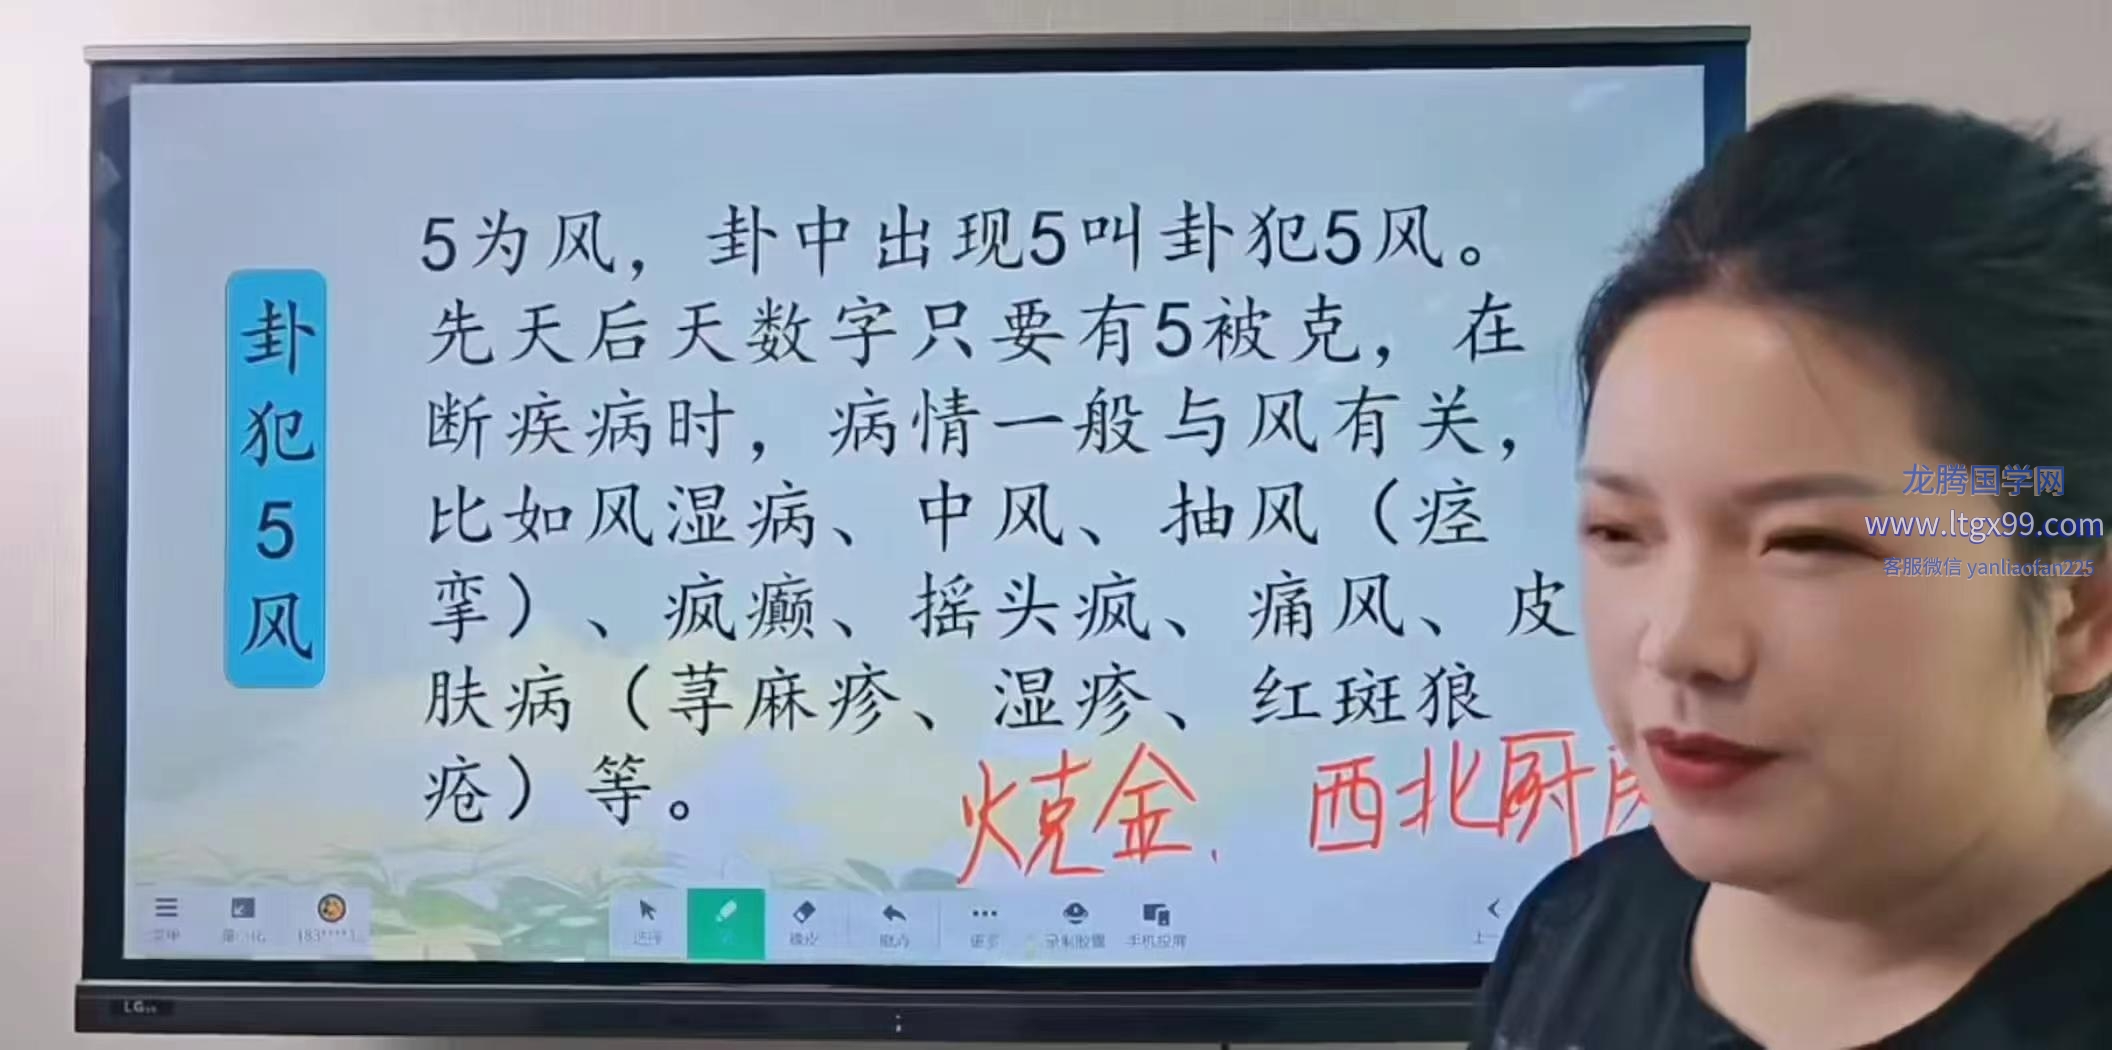 卦犯5风
5为风，卦中出现5叫卦犯5风。
先天后天数字只要有5被克，在
断疾病时，病情一般与风有关，
比如风湿病、中风、抽风（痉
挛）、疯癫、摇头疯、痛风、皮
肤病（荨麻疹、湿疹、红斑狼
疮）等。
火克金、西北厨房
龙腾国学网
www.ltgx99.com
客服微信 yanliaofan225
选择
橡皮
撤销
更多
录制胶囊
手机投屏
LG